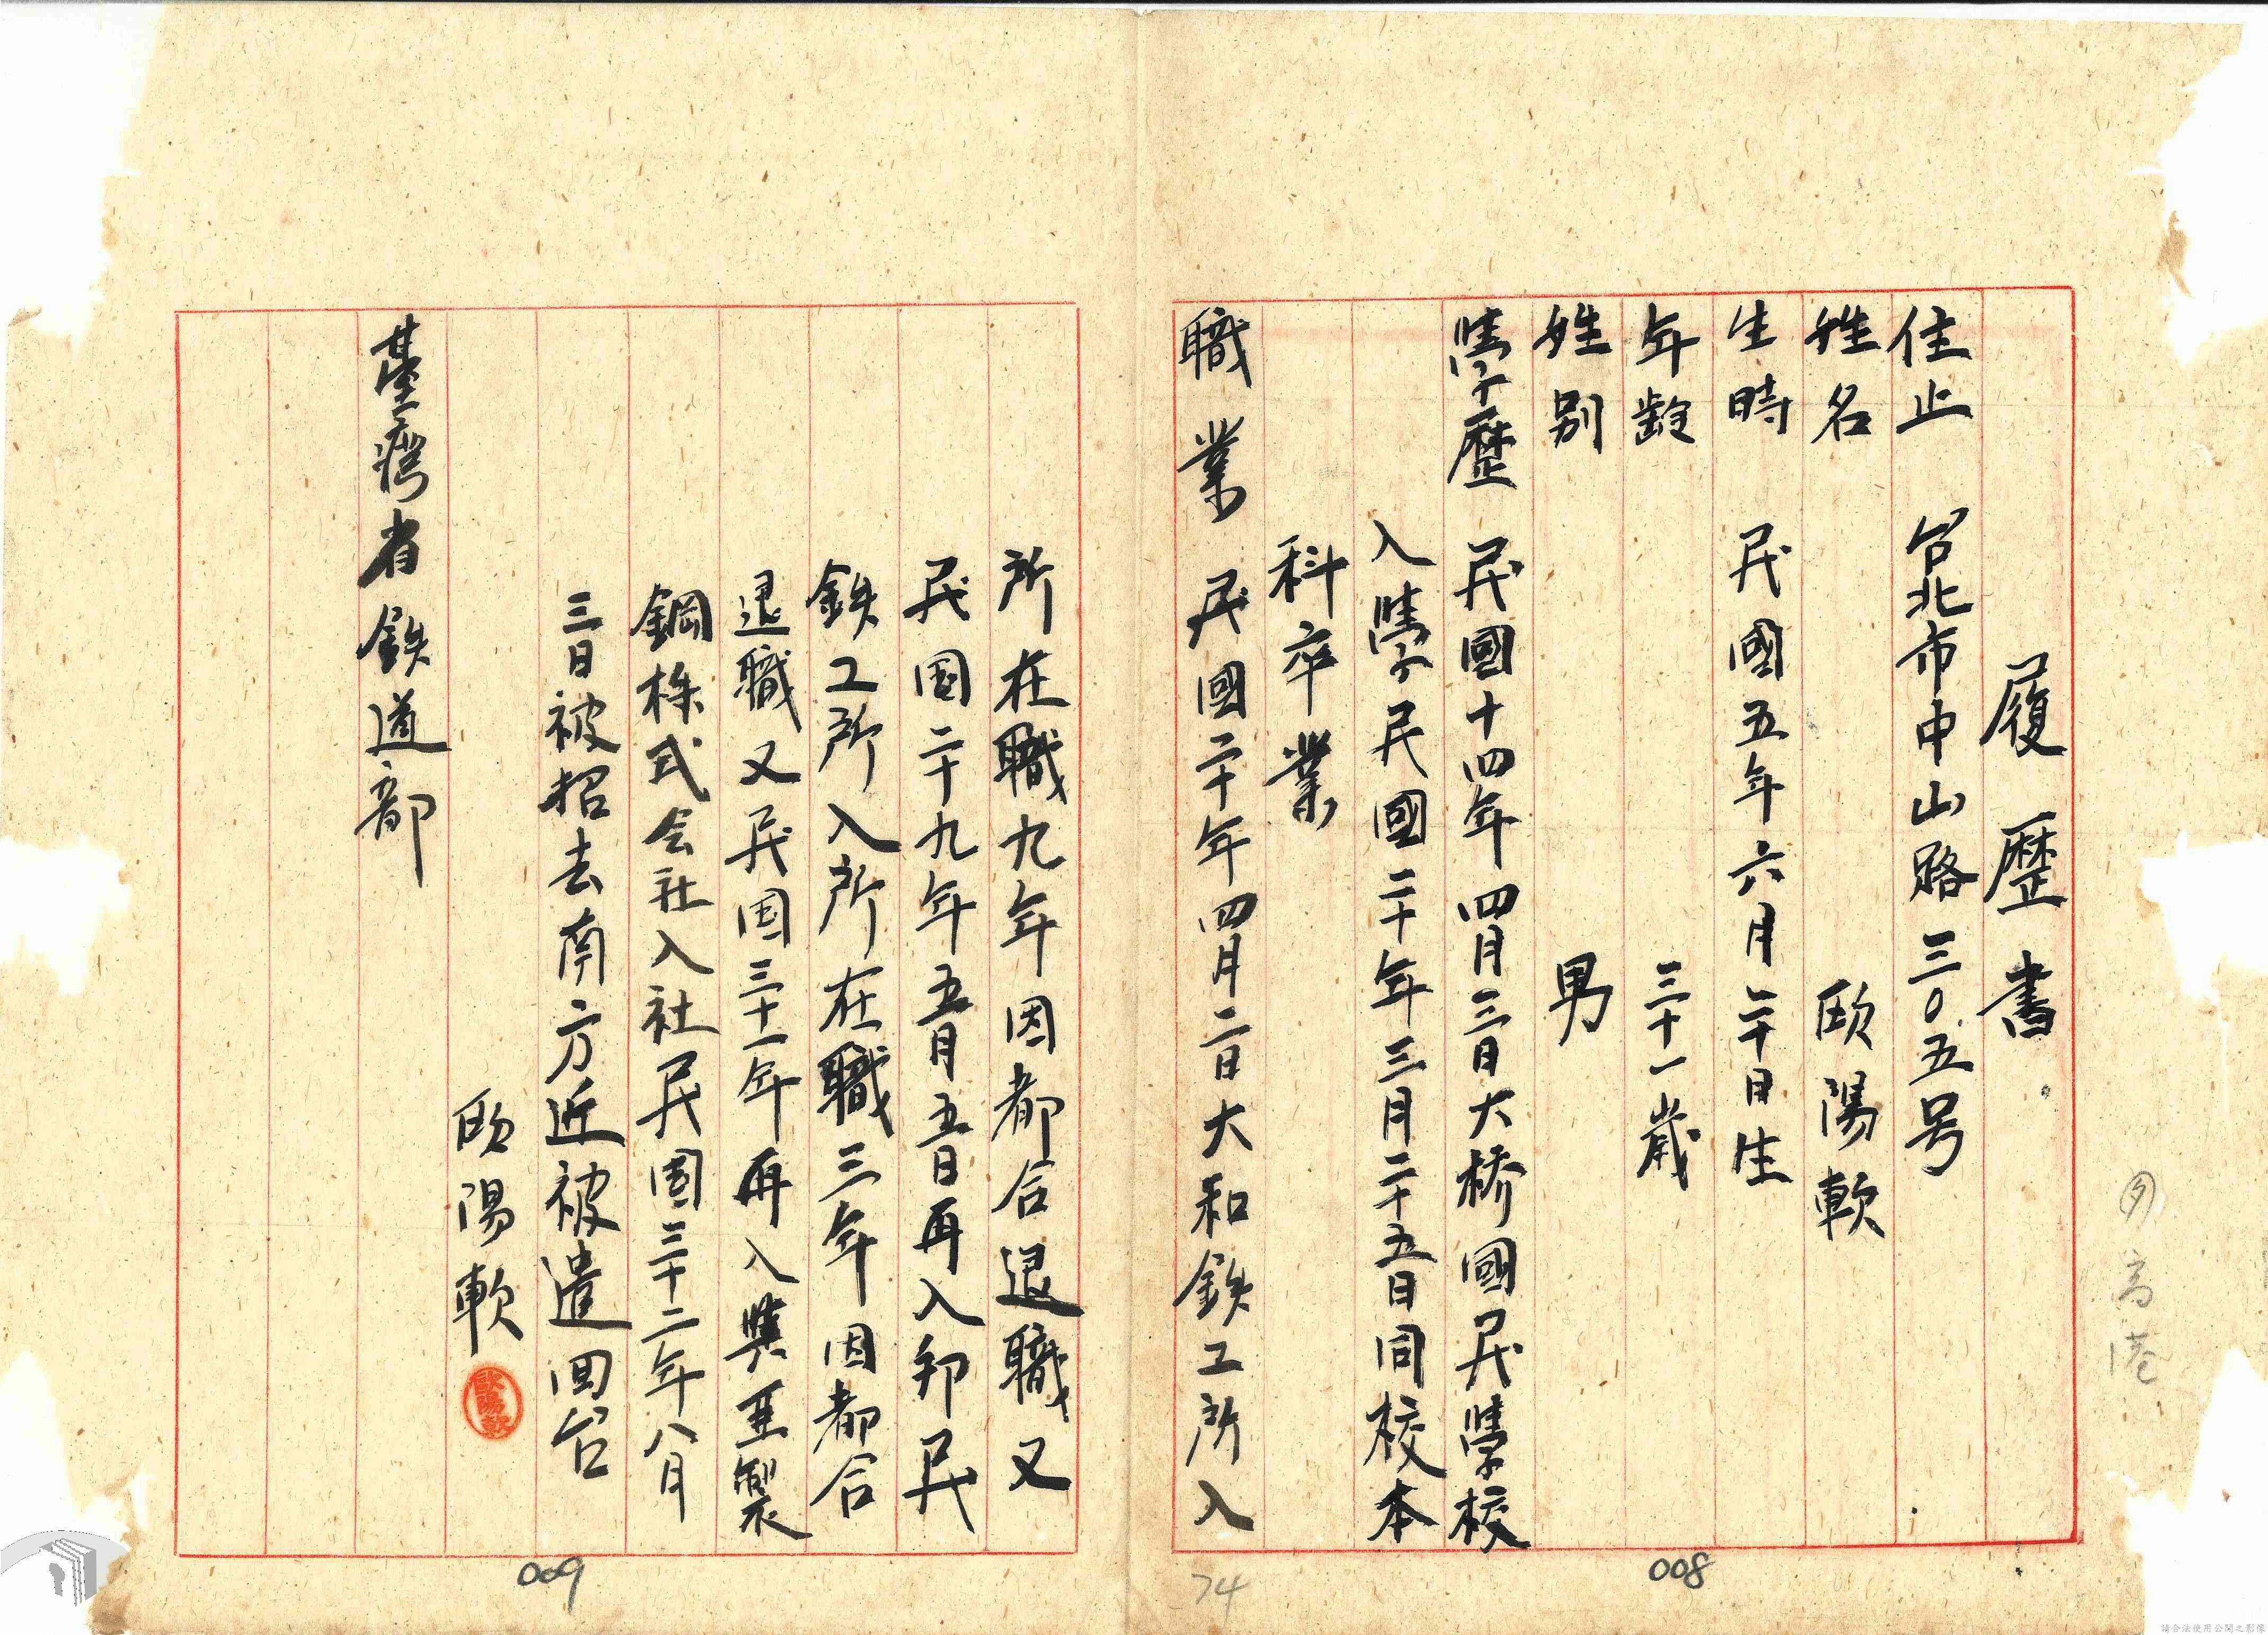 履歷書
住止 台北市中山路三〇五号
姓名 欧陽軟
生時 民國五年六月二十日生
年齡 三十一歲
姓别 男
學歷 民國十四年四月三日大桥國民學校
入學民國二十年三月二十五日同校本
科卒業
職業 民國二十年四月二日大和鉄工所入
所在職九年因都合退職又
民国二十九年五月五日再入邦民
鉄工所入所在職三年因都合
退職又民国三十一年再入興亜製
鋼株式会社入社民国三十二年八月
三日被招去南方近被遣回台
欧陽軟
臺灣省鉄道部
高港
008
74
009
請合法使用公開之影像